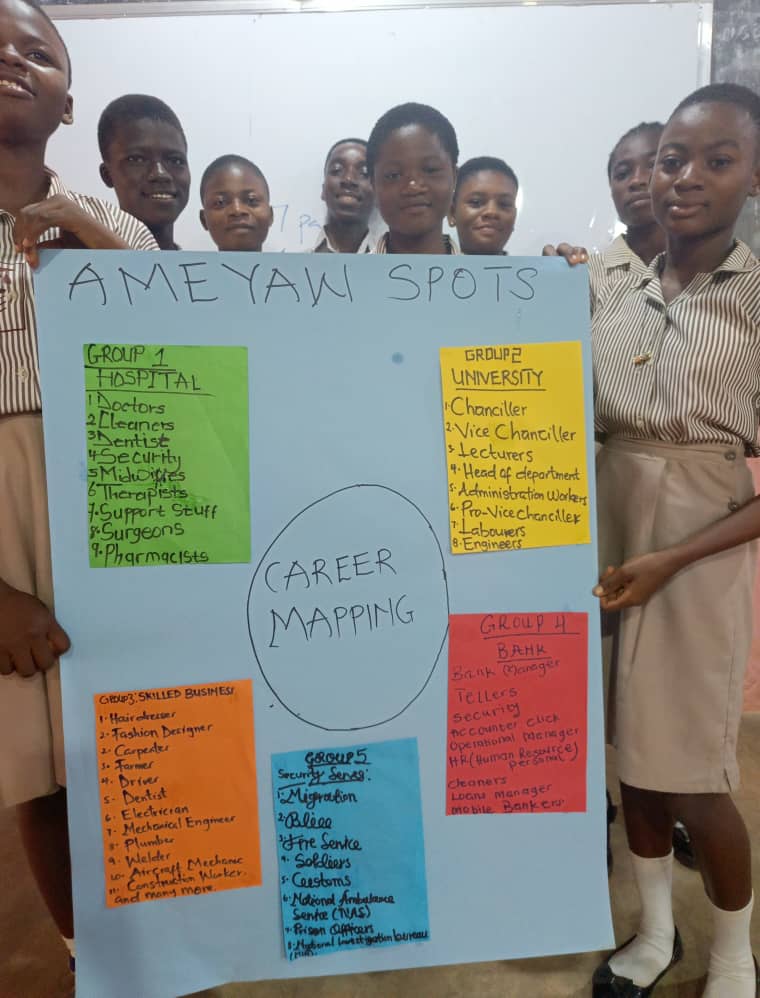 AMEYAW SPOTS
GROUP 1
HOSPITAL
1 Doctors
2 Cleaners
3 Dentist
4 Security
5 Midwifes
6 Therapists
7. Support Stuff
8. Surgeons
9. Pharmacists
GROUP 2
UNIVERSITY
1. Chanciller
2. Vice Chanciller
3. Lecturers
4. Head of department
5. Administration Workers
6. Pro-Vice Chanciller
7. Labourers
8. Engineers
CAREER
MAPPING
GROUP3: SKILLED BUSINESS
1. Hairdresser
2. Fashion Designer
2. Carpenter
3. Farmer
4. Driver
5. Dentist
6. Electrician
7. Mechanical Engineer
8. Plumber
9. Welder
10. Aircraft Mechanic
11. Construction Worker.
and many more.
GROUP 4
BANK
Bank Manager
Tellers
Security
Accounter Click
Operational Manager
HR (Human Resource)
personal
Cleaners
Loans Manager
Mobile Bankers
Group 5
Security
1. Migration
3. Fire
4. Soldiers
5. Customs
6. National Ambulance
(NAS)
7. Prison Officers
8. National Investigation bureau